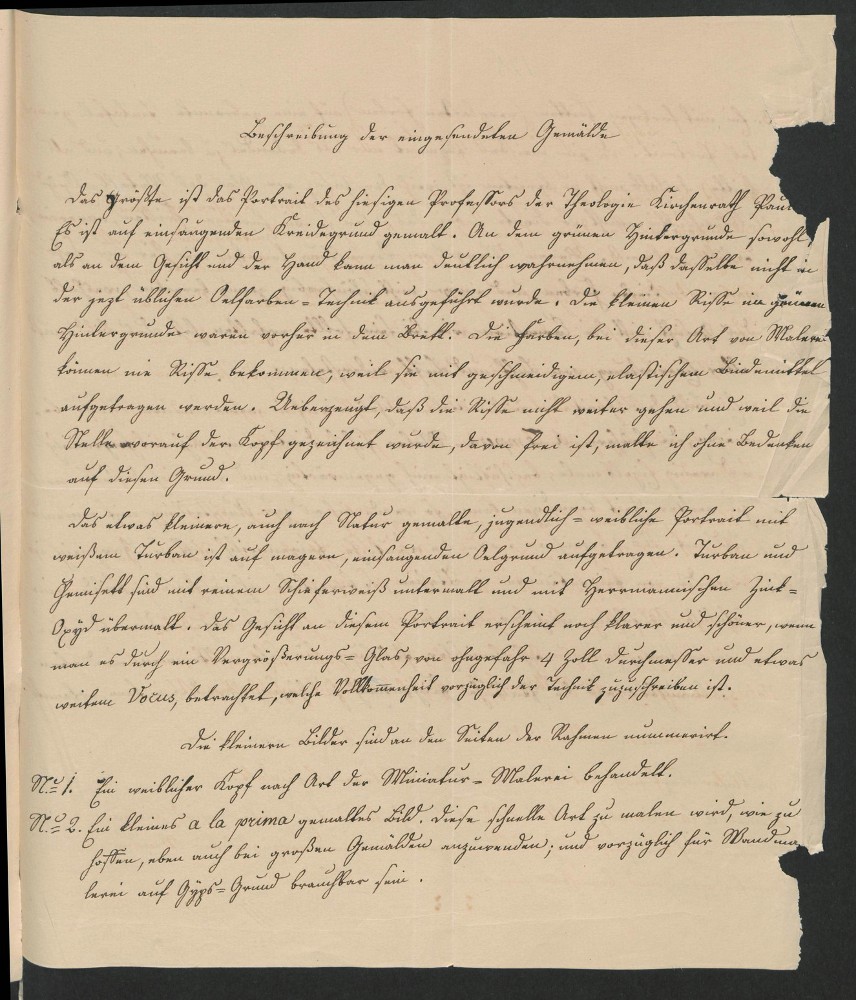 Beschreibung der eingesendeten Gemälde
Das größte ist das Portrait des hiesigen Professors der Theologie Kirchenrath Pau
Es ist auf einsaugenden Kreidegrund gemalt. An dem grünen Hintergrunde sowohl,
als an dem Gesicht und der Hand kann man deutlich wahrnehmen, daß dasselbe nicht in
der jezt üblichen Oelfarben=Technik ausgeführt wurde. Die kleinen Risse im grünen
Hintergrunde waren vorher in dem Brett. Die Farben, bei dieser Art von Malerei
können nie Risse bekommen, weil sie mit geschmeidigem, elastischem Bindemittel
aufgetragen werden. Ueberzeugt, daß die Risse nicht weiter gehen und weil die
Stelle worauf der Kopf gezeichnet wurde, davon frei ist, malte ich ohne Bedenken
auf diesen Grund.
Das etwas kleinere, auch nach Natur gemalte, jugendlich=weibliche Portrait mit
weißem Turban ist auf magern, einsaugenden Oelgrund aufgetragen. Turban und
Chemisett sind mit reinem Schieferweiß untermalt und mit Herrmannischen Zink=
Oxÿd übermalt. Das Gesicht an diesem Portrait erscheint noch klarer und schöner, wenn
man es durch ein Vergrößerungs=Glas, von ohngefähr 4 Zoll Durchmesser und etwas
weitem Vocus, betrachtet, welche Vollkommenheit vorzüglich der Technik zuzuschreiben ist.
Die kleinern Bilder sind an den Seiten der Rahmen nummerirt.
No. 1. Ein weiblicher Kopf nach Art der Miniatur=Malerei behandelt.
No. 2. Ein kleines a la prima gemaltes Bild. Diese schnelle Art zu malen wird, wie zu
hoffen, eben auch bei großen Gemälden anzuwenden; und vorzüglich für Wandma
lerei auf Gÿps=Grund brauchbar sein.